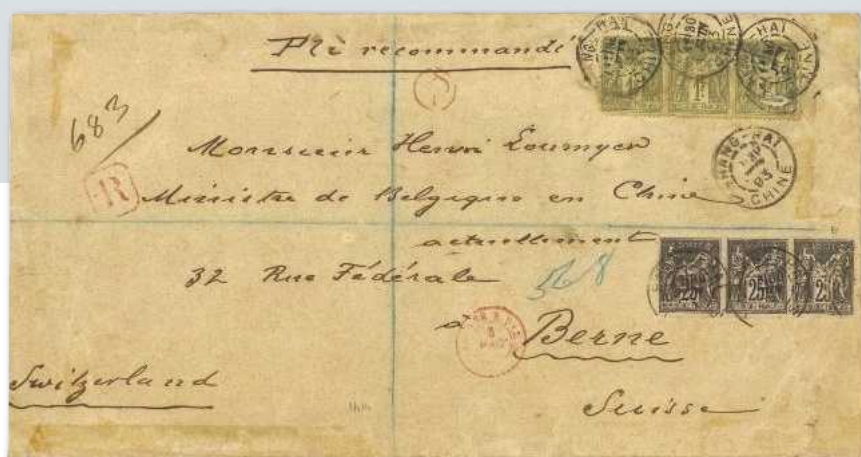 Pli recommandé
683
R
Monsieur Henri Loumyer
Ministre de Belgique en Chine
actuellement
32 Rue Fédérale
568
à Berne
Switzerland
Suisse
SHANG-HAI
CHINE
SHANG-HAI
93
CHINE
1F
25 25 25